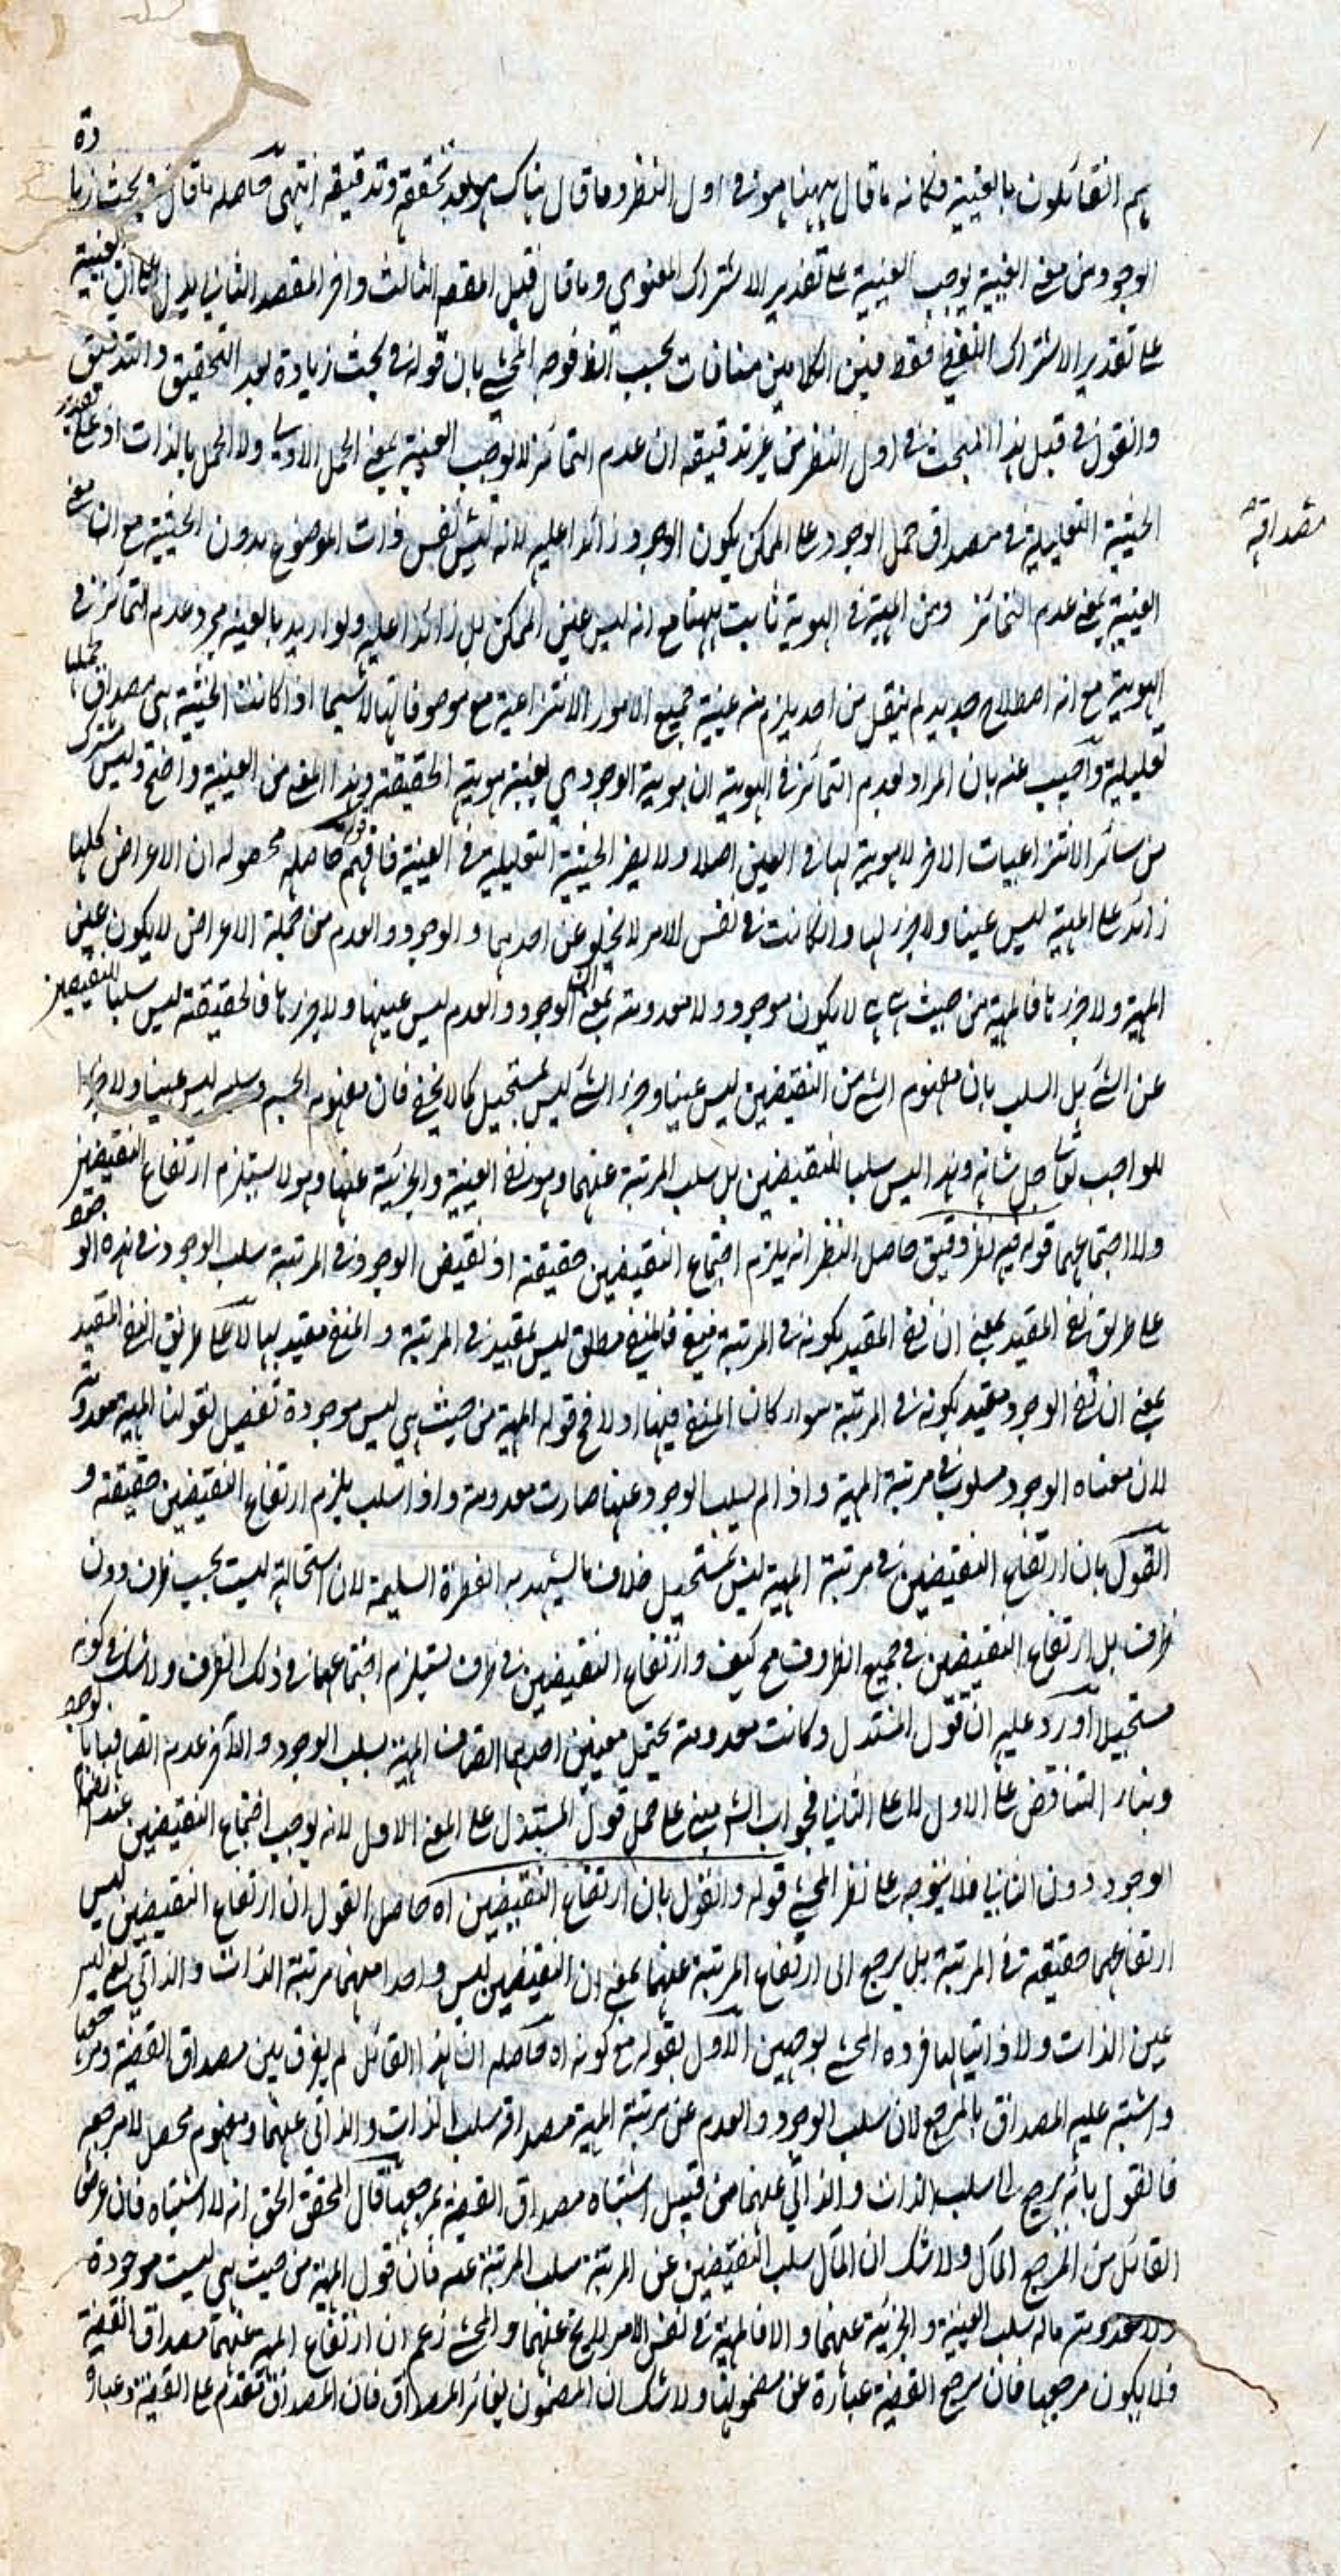 هم القائلون بالعينية فكانه ما قال ههنا هو في اول النظر وما قال هناك هو بعد تحقيقه وتدقيقه انتهى حاصله ما قال في بحث زيادة
الوجود من معنى العينية يوجب العينية على تقدير الاشتراك المعنوي وما قال قبيل المقصد الثالث واخر المقصد الثاني يدل على ان العينية
على تقدير الاشتراك اللفظي فقط فبين الكلامين منافات بحسب الظ فوجه المحشي بان قوله في بحث زيادة بعد التحقيق والتدقيق
والقول في قبل هذا المبحث في اول النظر من غير تدقيقه ان عدم التمائز لا يوجب العينية بمعنى الحمل الاولي ولا الحمل بالذات اذ على تقدير
الحيثية التعليلية في مصداق حمل الوجود على الممكن يكون الوجود زائدا عليه لانه ليس نفس ذات الموضوع بدون الحيثية مع ان معنى
مصداقية
العينية بمعنى عدم التمائز ومن المهية في الهوية ثابت ههنا مع انه ليس عين الممكن بل زائدا عليه ولو اريد بالعينية مجرد عدم التمائز في
الهوية مع انه اصطلاح جديد لم ينقل من احد يلزم منه عينية جميع الامور الانتزاعية مع موصوفاتها لاسيما اذا كانت الحيثية في مصداق حملها
تعليلية واجيب عنه بان المراد بعدم التمائز في الهوية ان هوية الوجود هي بعينه هوية الحقيقة وهذا المعنى من العينية واضح وليس مشترك
من سائر الانتزاعيات الاخر لا هوية لها في العين اصلا ولا يضر الحيثية التعليلية في العينية فافهم قوله حاصله محصوله ان الاعراض كلها
زائد على المهية ليس عينا ولا جزء لها وان كانت في نفس الامر لا يخلو عن احدهما والوجود والعدم من جملة الاعراض لا يكون عين
المهية ولا جزءها فالمهية من حيث هي هي لا يكون موجود ولا معدومة بمعنى ان الوجود والعدم ليس عينها ولا جزءها فالحقيقة ليس سلبا للنقيضين
عن الشئ بل السلب بان مفهوم الشئ من النقيضين ليس عينا وجزء الشئ ليس بمستحيل كما لا يخفى فان مفهوم الجسم وسلبه ليس عينا ولا جزءا
للواجب تعالى جل شانه وهذا ليس سلبا للنقيضين بل سلب المرتبة عنهما وهو نفي العينية والجزئية عنها وهو لا يستلزم ارتفاع النقيضين
ولا اجتماعهما قوله فيه نظر دقيق حاصل النظر انه يلزم اجتماع النقيضين حقيقة اذ نقيض الوجود في المرتبة سلب الوجود في هذه
على طريق نفي المقيد بمعنى ان نفي المقيد بكونه في المرتبة فالمنفي مطلق ليس بمقيد في المرتبة و المنفي مقيد بها لا على طريق النفي المقيد
بمعنى ان نفي الوجود مقيد بكونه في المرتبة سواء كان المنفي فيها او لا فح قوله المهية من حيث هي ليس موجودة نقيض لقولنا المهية معدومة
لان معناه الوجود مسلوب في مرتبة المهية واذا لم يسلب الوجود عنها صارت معدومة واذا سلب يلزم ارتفاع النقيضين حقيقة و
القول بان ارتفاع النقيضين في مرتبة المهية ليس بمستحيل خلاف ما يشهد به الفطرة السليمة لان استحالته ليست بحسب ظرف دون
ظرف بل ارتفاع النقيضين في جميع الظروف مح كيف وارتفاع النقيضين في ظرف يستلزم اجتماعهما في ذلك الظرف ولا شك في كونه
مستحيلا اورد عليه ان قول المستدل وكانت معدومة يحتمل معنين احدهما اتصاف المهية بسلب الوجود والآخر عدم اتصافها بالوجود
وبناء التناقض على الاول لا على الثاني فجواب الش مبني على حمل قول المستدل على المعنى الاول لانه يوجب اجتماع النقيضين عند انضمام
الوجود دون الثاني فلا يتوجه على نظر المحشي قوله والقول بان ارتفاع النقيضين اه حاصل القول ان ارتفاع النقيضين ليس
ارتفاعهما حقيقة في المرتبة بل يرجع الى ارتفاع المرتبة عنهما بمعنى ان النقيضين ليس واحدا منهما مرتبة الذات والذاتي ليس
عين الذات ولا ذاتيا لها فرده المحشي بوجهين الاول بقوله مع كونه اه حاصله ان هذا القائل لم يفرق بين مصداق القضية ومرجعها
واشتبه عليه المصداق بالمرجع لان سلب الوجود والعدم عن مرتبة المهية مصداقه سلب الذات والذاتي عنهما ومفهوم محصل لامرجعه
فالقول بانه يرجع الى سلب الذات والذاتي عنهما من قبيل اشتباه مصداق القضية بمرجعها قال المحقق الحق انه لا اشتباه فان غرض
القائل من المرجع المآل ولا شك ان المآل سلب النقيضين عن المرتبة سلب المرتبة عنه فان قول المهية من حيث هي ليست موجودة
ولا معدومة ماله سلب العينية والجزئية عنهما والا فالمهية في نفس الامر لا يخ عنهما والمحشي زعم ان ارتفاع المهية عنهما مصداق القضية
فلا يكون مرجعها فان مرجع القضية عبارة عن مضمونها ولا شك ان المضمون يغائر المصداق فان المصداق متقدم على القضية وعبارة